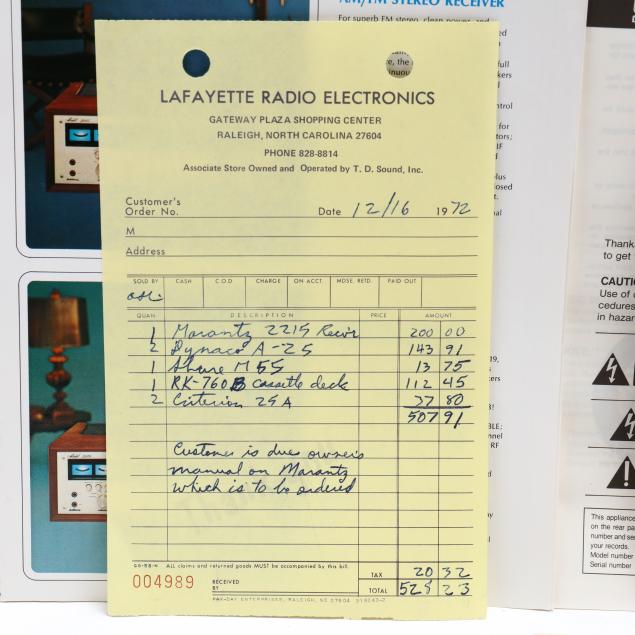 AM/FM STEREO RECEIVER
For superb FM stereo, clean power, and
LAFAYETTE RADIO ELECTRONICS
GATEWAY PLAZA SHOPPING CENTER
RALEIGH, NORTH CAROLINA 27604
PHONE 828-8814
Associate Store Owned and Operated by T. D. Sound, Inc.
Customer's
Order No. Date 12/16 1972
M
Address
SOLD BY CASH C.O.D CHARGE ON ACCT. MDSE. RETD. PAID OUT
QUAN. DESCRIPTION PRICE AMOUNT
1 Marantz 2215 Recvr 200 00
2 Dynaco A-25 143 91
1 Shure M55 13 75
1 RK-760B cassette deck 112 45
2 Criterion 25A 37 80
507 91
Customer is due owner's
manual on Marantz
which is to be ordered
ALL claims and returned goods MUST be accompanied by this bill.
004989 RECEIVED BY
TAX 20 32
TOTAL 528 23
PAK-DAY ENTERPRISES, RALEIGH, NC 27604
Thank
to get
CAUTI
Use of
cedures
in hazar
This appliance
on the rear pa
number and se
your records.
Model number
Serial number